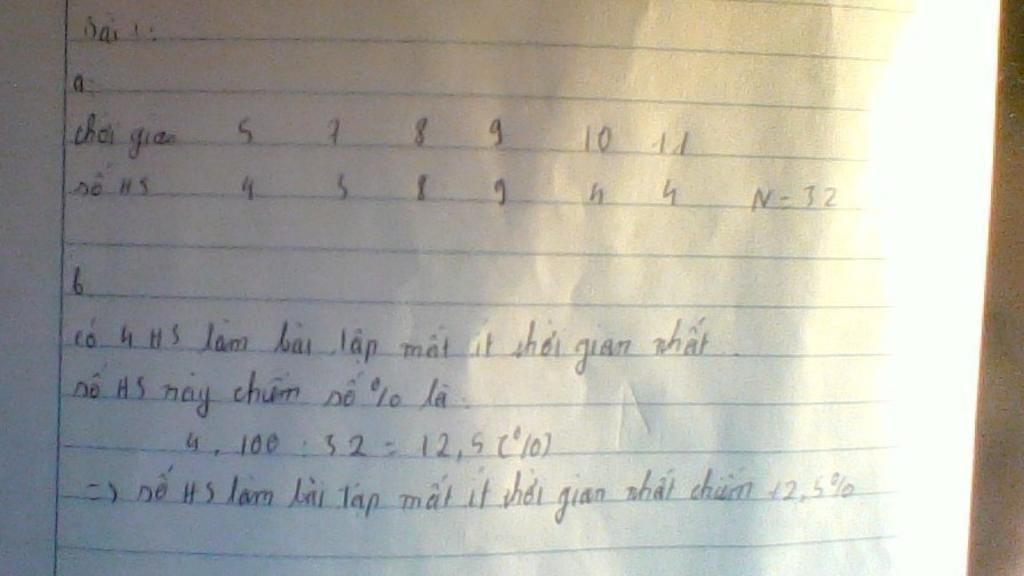 bài 1:
a:
thời gian 5 7 8 9 10 11
số HS 4 3 8 9 4 4 N = 32
b
có 4 HS làm bài tập mất ít thời gian nhất.
số HS này chiếm số % là:
4 . 100 : 32 = 12,5 (%)
=> số HS làm bài tập mất ít thời gian nhất chiếm 12,5%